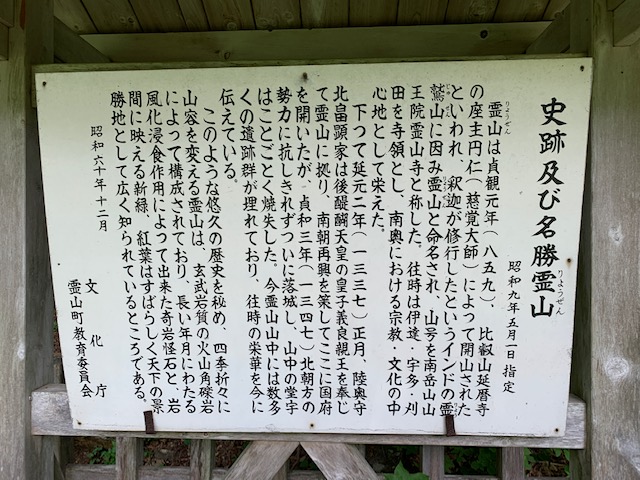 史跡及び名勝霊山
りょうぜん
昭和九年五月一日指定
りょうぜん
霊山は貞観元年（八五九）、比叡山延暦寺
の座主円仁（慈覚大師）によって開山された
といわれ、釈迦が修行したというインドの霊
鷲山に因み霊山と命名され、山号を南岳山山
王院霊山寺と称した。往時は伊達・宇多・刈
田を寺領とし、南奥における宗教・文化の中
心地として栄えた。
下つて延元二年（一三三七）正月、陸奥守
北畠顕家は後醍醐天皇の皇子義良親王を奉じ
て霊山に拠り、南朝再興を策してここに国府
を開いたが、貞和三年（一三四七）北朝方の
勢力に抗しきれずついに落城し、山中の堂宇
はことごとく焼失した。今霊山山中には数多
くの遺跡群が埋れており、往時の栄華を今に
伝えている。
このような悠久の歴史を秘め、四季折々に
山容を変える霊山は、玄武岩質の火山角礫岩
によって構成されており、長い年月にわたる
風化浸食作用によって出来た奇岩怪石と、岩
間に映える新緑、紅葉はすばらしく天下の景
勝地として広く知られているところである。
昭和六十年十二月
文化庁
霊山町教育委員会